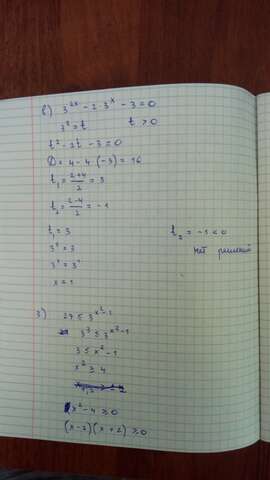 в) 3^{2x} - 2 · 3^x - 3 = 0
3^x = t    t > 0
t² - 2t - 3 = 0
D = 4 - 4 · (-3) = 16
t₁ = (2+4)/2 = 3
t₂ = (2-4)/2 = -1
t₁ = 3    t₂ = -1 < 0
3^x = 3    нет решений
3^x = 3¹
x = 1
3) 27 ≤ 3^{x²-1}
3³ ≤ 3^{x²-1}
3 ≤ x² - 1
x² ≥ 4
x² - 4 ≥ 0
(x - 2)(x + 2) ≥ 0